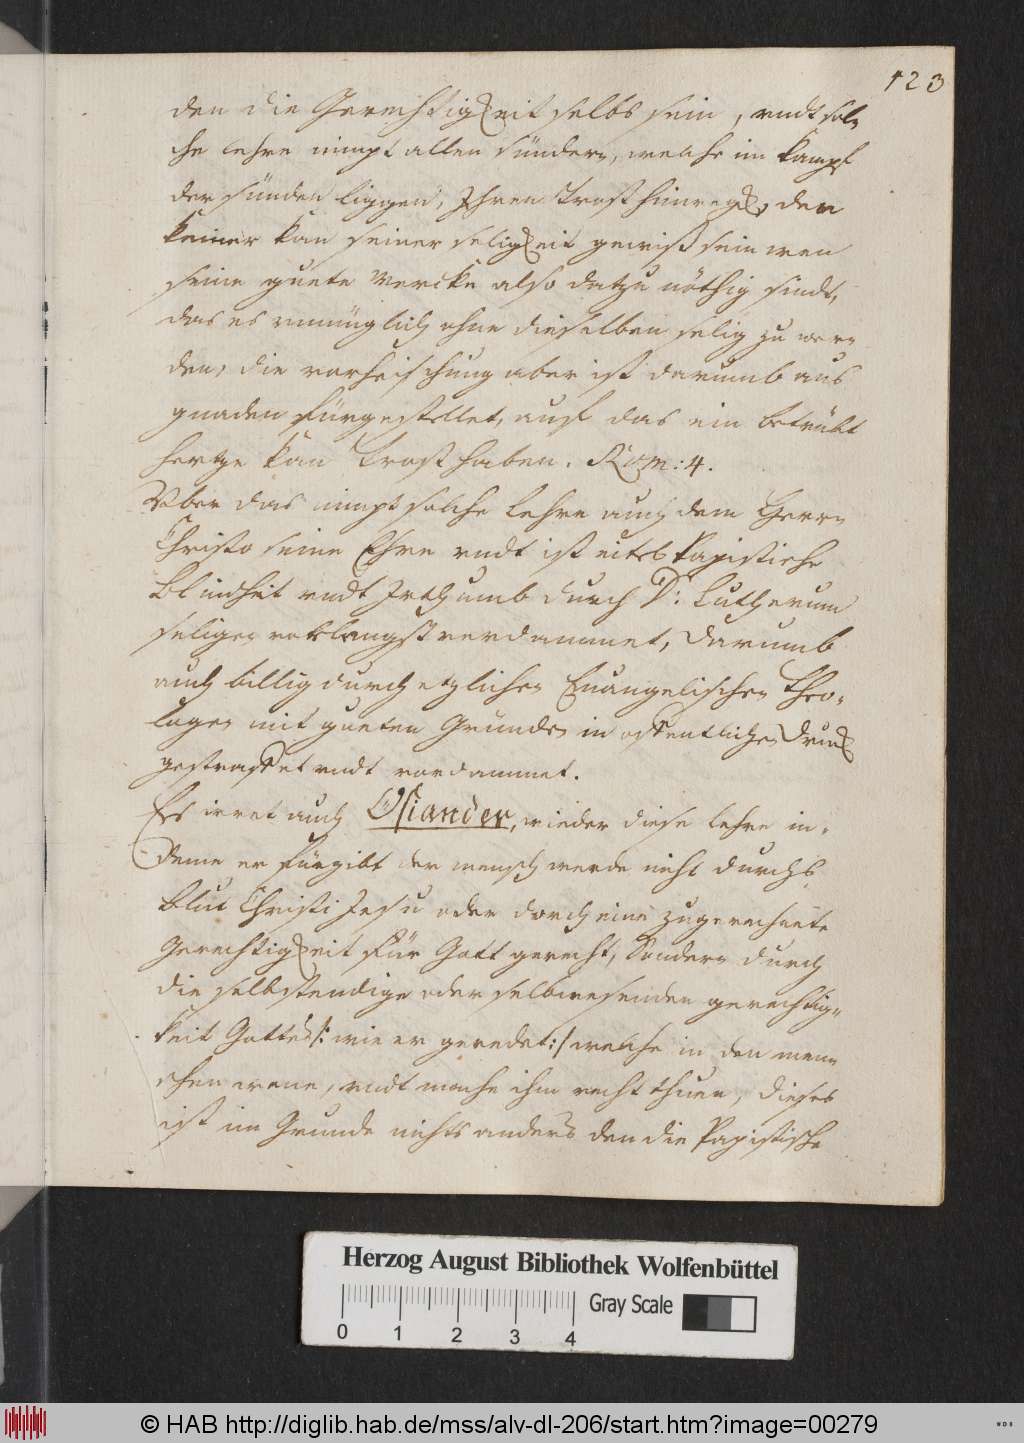 123
den die Gerechtigkeit selbs sein, undt sol-
che lehre nimpt allen sündern, welche im Kampf
der sünden liggen, Ihren Trost hinwegk, den
keiner kan seiner seligkeit gewiß sein wen
seine guete Wercke also datzu nöthig sindt,
das es unmüglich ohne dieselben selig zu wer-
den, die verheischung aber ist darumb aus
gnaden fürgestellet, auf das ein betrübt
hertze kan Trost haben. Rom: 4.
Uber das nimpt solche lehre auch dem Herrn
Christo seine Ehre undt ist eitel Papistische
Blindheit undt Irthumb durch D: Lutherum
seligen vorlengst verdammet, darumb
auch billig durch etzlichen Euangelischen Theo-
logen mit gueten Gründen in offentlichen Druck
gestraffet undt vordammet.
Es irret auch Osiander, wieder diese lehre in-
deme er fürgibt der mensch werde nicht durchs
Blut Christi Jesu oder dorch eine zugerechnete
Gerechtigkeit für Gott gerecht, Sondern durch
die selbstendige oder selbwesenden gerechtig-
keit Gottes /: wie er geredet :/ welche in den men-
schen wone, undt mache ihn recht thuen, dieses
ist im Grunde nichts anders den die Papistische
Herzog August Bibliothek Wolfenbüttel
0 1 2 3 4 Gray Scale
© HAB http://diglib.hab.de/mss/alv-dl-206/start.htm?image=00279